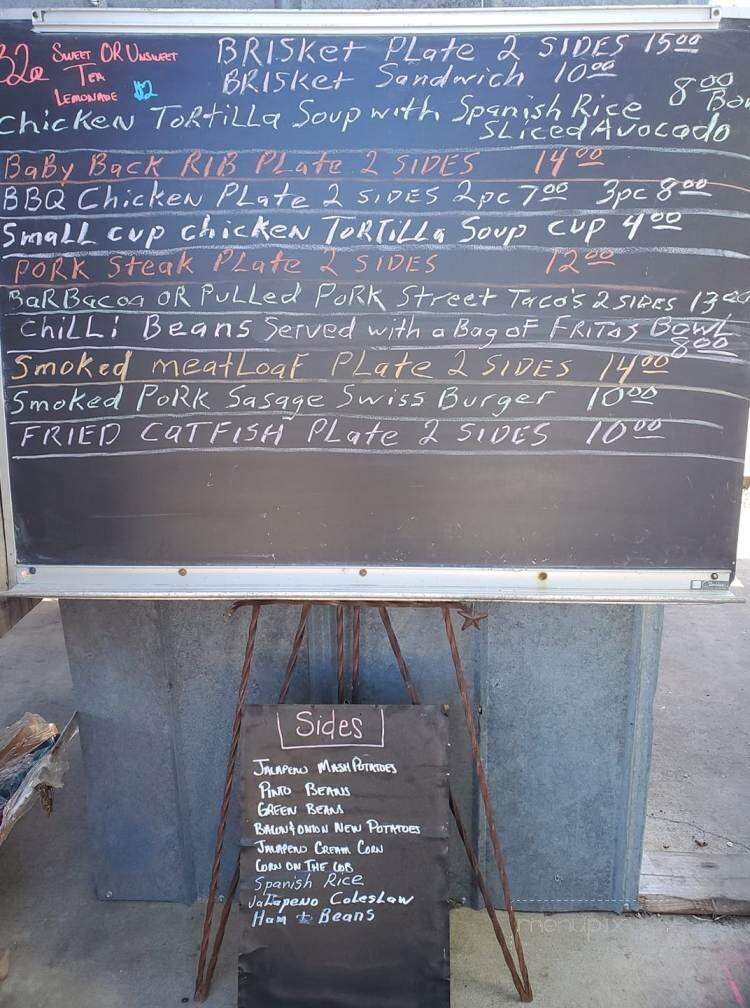 Sweet OR Unsweet
Tea
Lemonade $2
BRISket PLate 2 SIDES 15 00
BRISket Sandwich 10 00
Chicken ToRtiLLa Soup with Spanish Rice 8 00
SLiced Avocado
BaBy Back RIB PLate 2 SIDES 14 00
BBQ Chicken PLate 2 SIDES 2pc 7 00 3pc 8 00
SmaLL cup chicken ToRTiLLa Soup cup 4 00
PORK Steak PLate 2 SIDES 12 00
BaRBacoa OR PuLLed PoRK Street Taco's 2 SIDES 13 00
ChiLLi Beans Served with a Bag of FRITos BowL
8 00
Smoked meatLoaf PLate 2 SIDES 14 00
Smoked PoRK Sasage Swiss Burger 10 00
FRIED CatFISH PLate 2 SIDES 10 00
Sides
Jalapeno Mash Potatoes
Pinto Beans
Green Beans
Bacon & Onion New Potatoes
Jalapeno Cream Corn
Corn on The Cob
Spanish Rice
JaLapeno ColesLaw
Ham & Beans
menupix